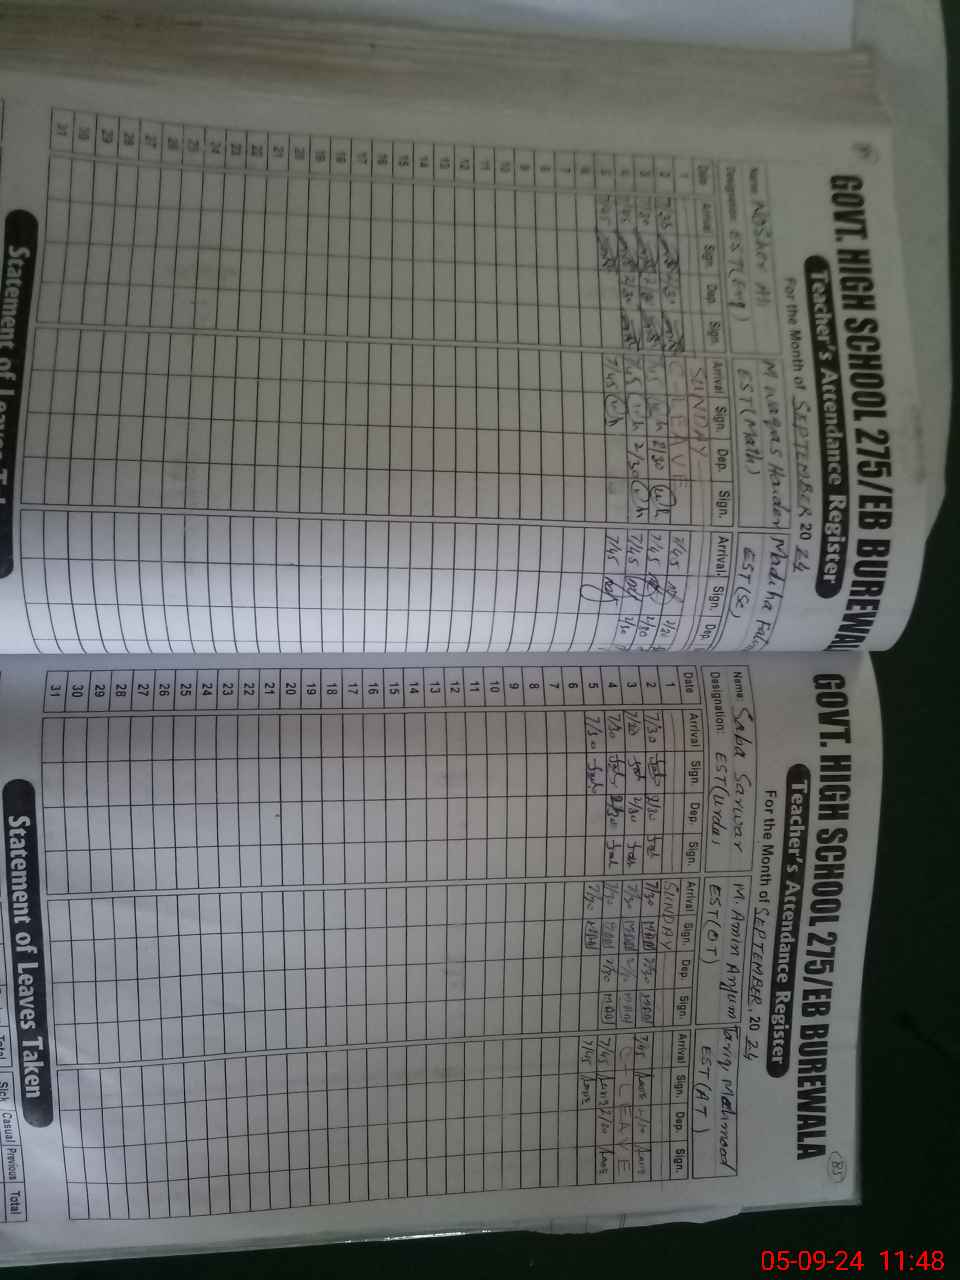 GOVT. HIGH SCHOOL 275/EB BUREWAL
Teacher's Attendance Register
For the Month of SEPTEMBER 2024
Name: Ali M Waqas Haider Madiha
Designation: EST(Eng) EST(Math) EST(Sc)
Date Arrival Sign. Dep. Sign. Arrival Sign. Dep. Sign. Arrival. Sign. Dep.
1 SUNDAY
2 7/30 2/30 C-LEAVE 7/45
3 7/30 7/45 2/30 7/45 2/30
4 7/45 2/30 7/45 2/30 7/45 2/30
5 7/45 7/45 7/45
6
7
8
9
10
11
12
13
14
15
16
17
18
19
20
21
22
23
24
25
26
27
28
29
30
31
Statement of Leaves
85
GOVT. HIGH SCHOOL 275/EB BUREWALA
Teacher's Attendance Register
For the Month of SEPTEMBER, 2024
Name: Saba Sarwar M. Amin Anjum Tariq Mehmood
Designation: EST(Urdu) EST(OT) EST(AT)
Date Arrival Sign. Dep. Sign. Arrival Sign. Dep. Sign. Arrival Sign. Dep. Sign.
1 SUNDAY
2 7/30 2/30 7/30 2/30 7/45 2/30
3 7/30 2/30 7/30 2/30 C-LEAVE
4 7/30 2/30 7/30 2/30 7/45 2/30
5 7/30 7/30 7/45
6
7
8
9
10
11
12
13
14
15
16
17
18
19
20
21
22
23
24
25
26
27
28
29
30
31
Statement of Leaves Taken
Total Sick Casual Previous Total
05-09-24 11:48